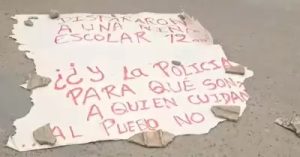 DISPARARON
A UNA NIÑA
ESCOLAR 12...
¿¿Y LA POLICIA
PARA QUÉ SON
A QUIEN CUIDAN
AL PUEBLO NO